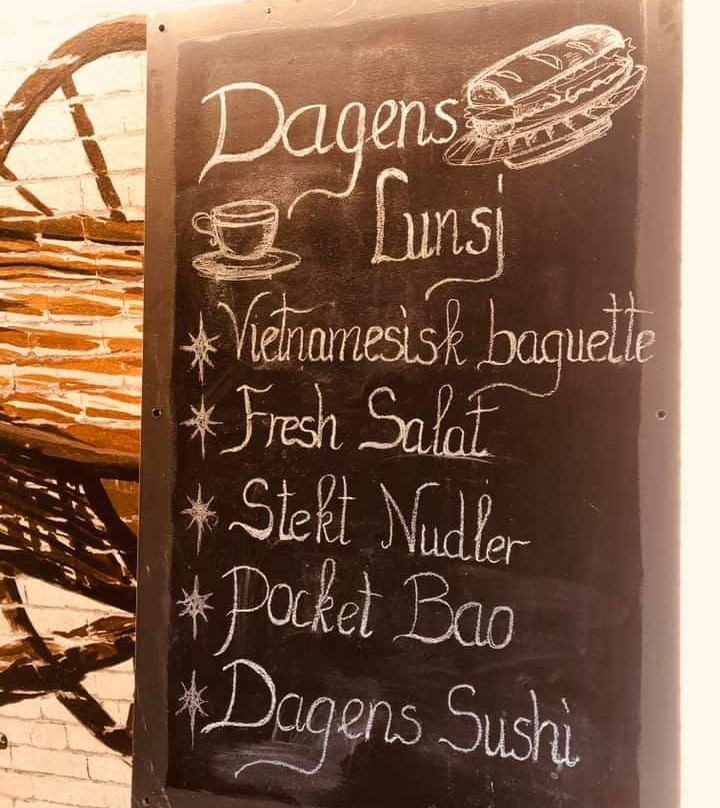 Dagens
Lunsj
Vietnamesisk baguette
Fresh Salat
Stekt Nudler
Pocket Bao
Dagens Sushi